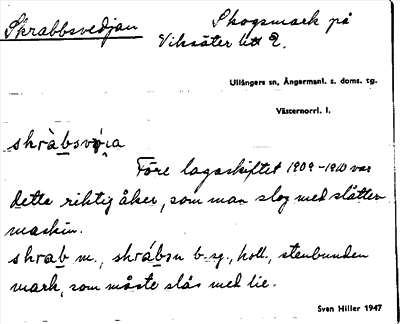 Skrabbsvedjan
Skogsmark på
Viksäter litt 2.
Ullångers sn, Ångermanl. s. doms. tg.
Västernorrl. l.
skràbsvó̩ɩa
Före lagaskiftet 1909-1910 var
dette riktig åker, som man slog med slåtter
maskin.
skrab m., skrábsn b. sg., holl, stenbunden
mark, som måste slås med lie.
Sven Hiller 1947